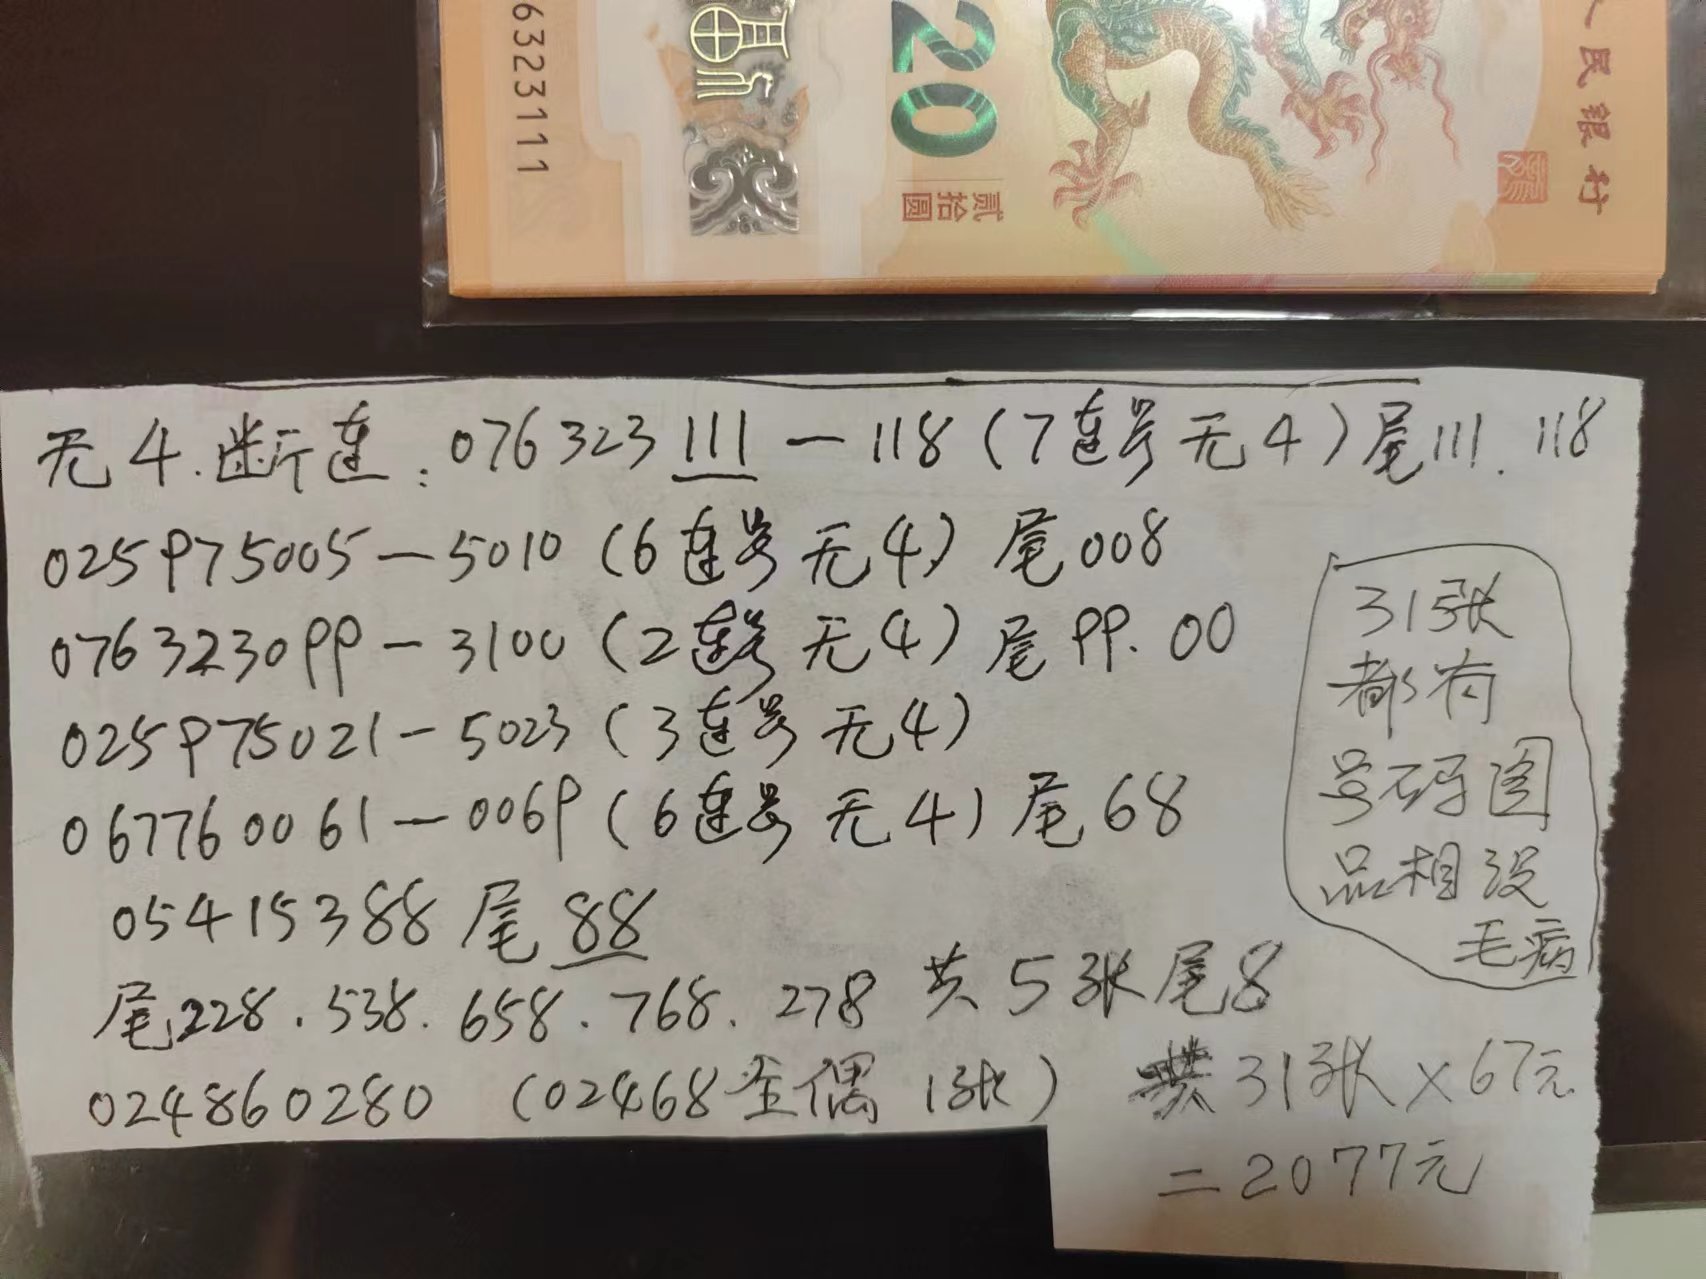 6323111
20
贰拾圆
人民银行
无4.断连:076323111—118(7连号无4)尾111.118
025975005—5010(6连号无4)尾008
076323099—3100(2连号无4)尾99.00
025975021—5023(3连号无4)
067760061—0069(6连号无4)尾68
05415388尾88
尾228.538.658.768.278共5张尾8
024860280(02468全偶1张)
31张
都有
号码图
品相没
毛病
共31张×67元
=2077元